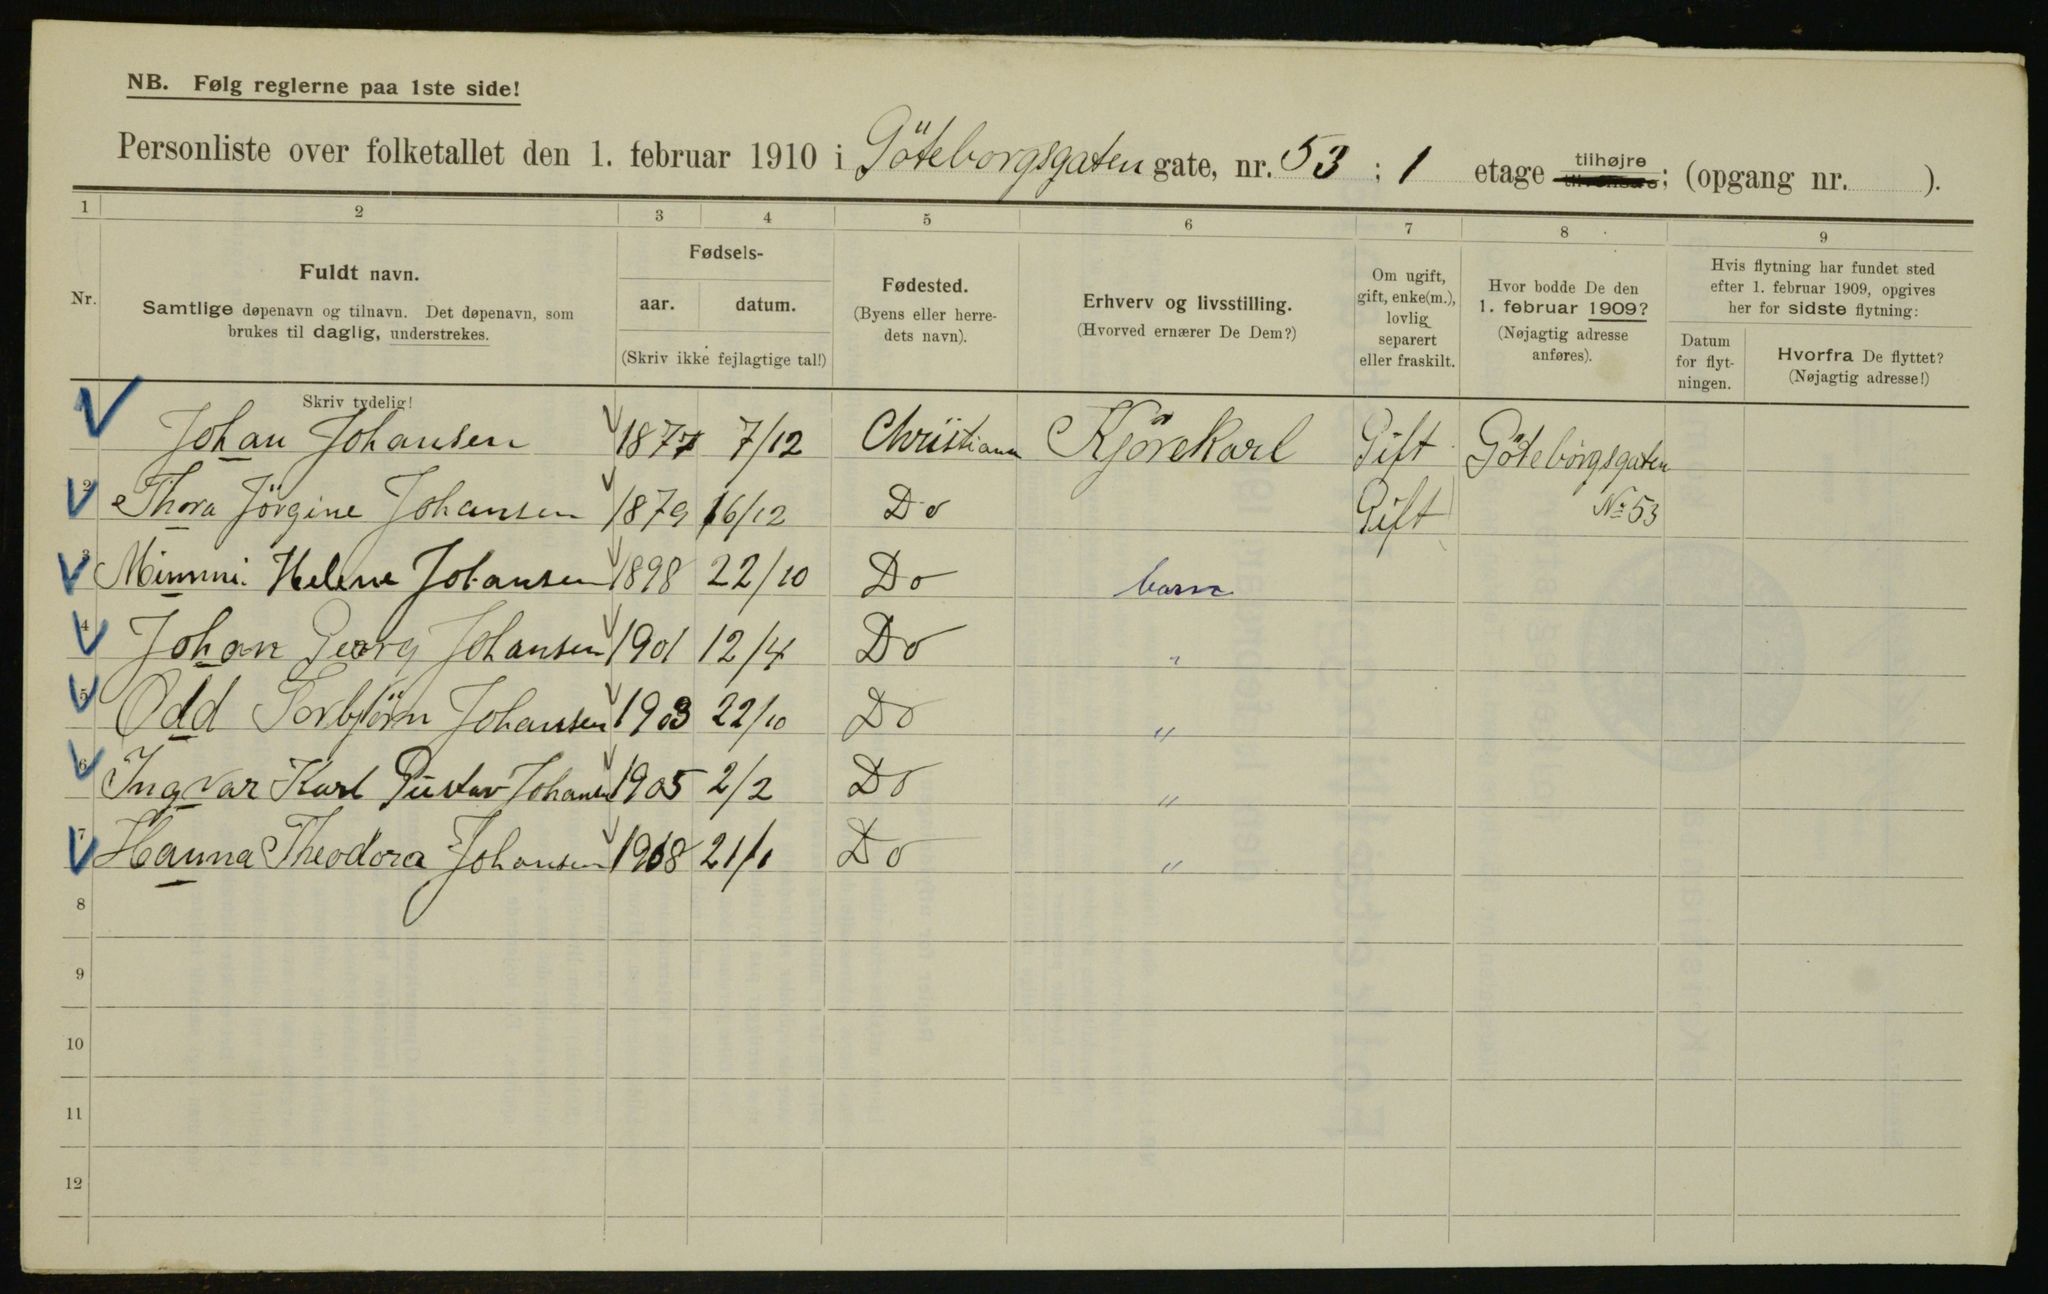 NB. Følg reglerne paa 1ste side!
Personliste over folketallet den 1. februar 1910 i Göteborgsgaten gate, nr. 53 ; 1 etage tilhøjre ; (opgang nr. ).
1 2 3 4 5 6 7 8 9
Nr.
Fuldt navn.
Samtlige døpenavn og tilnavn. Det døpenavn, som
brukes til daglig, understrekes.
Fødsels-
aar. datum.
(Skriv ikke fejlagtige tal!)
Fødested.
(Byens eller herre-
dets navn).
Erhverv og livsstilling.
(Hvorved ernærer De Dem?)
Om ugift,
gift, enke(m.),
lovlig
separert
eller fraskilt.
Hvor bodde De den
1. februar 1909?
(Nøjagtig adresse
anføres).
Hvis flytning har fundet sted
efter 1. februar 1909, opgives
her for sidste flytning:
Datum
for flyt-
ningen.
Hvorfra De flyttet?
(Nøjagtig adresse!)
Skriv tydelig!
Johan Johansen 1877 7/12 Christiania Kjörekarl Gift Göteborgsgaten
2 Thora Jörgine Johansen 1879 16/12 Do Gift No 53
3 Mimmi Helene Johansen 1898 22/10 Do barn
4 Johan Georg Johansen 1901 12/4 Do "
5 Odd Torbjörn Johansen 1903 22/10 Do "
6 Ingvar Karl Gustav Johansen 1905 2/2 Do "
7 Hanna Theodora Johansen 1908 21/1 Do "
8
9
10
11
12